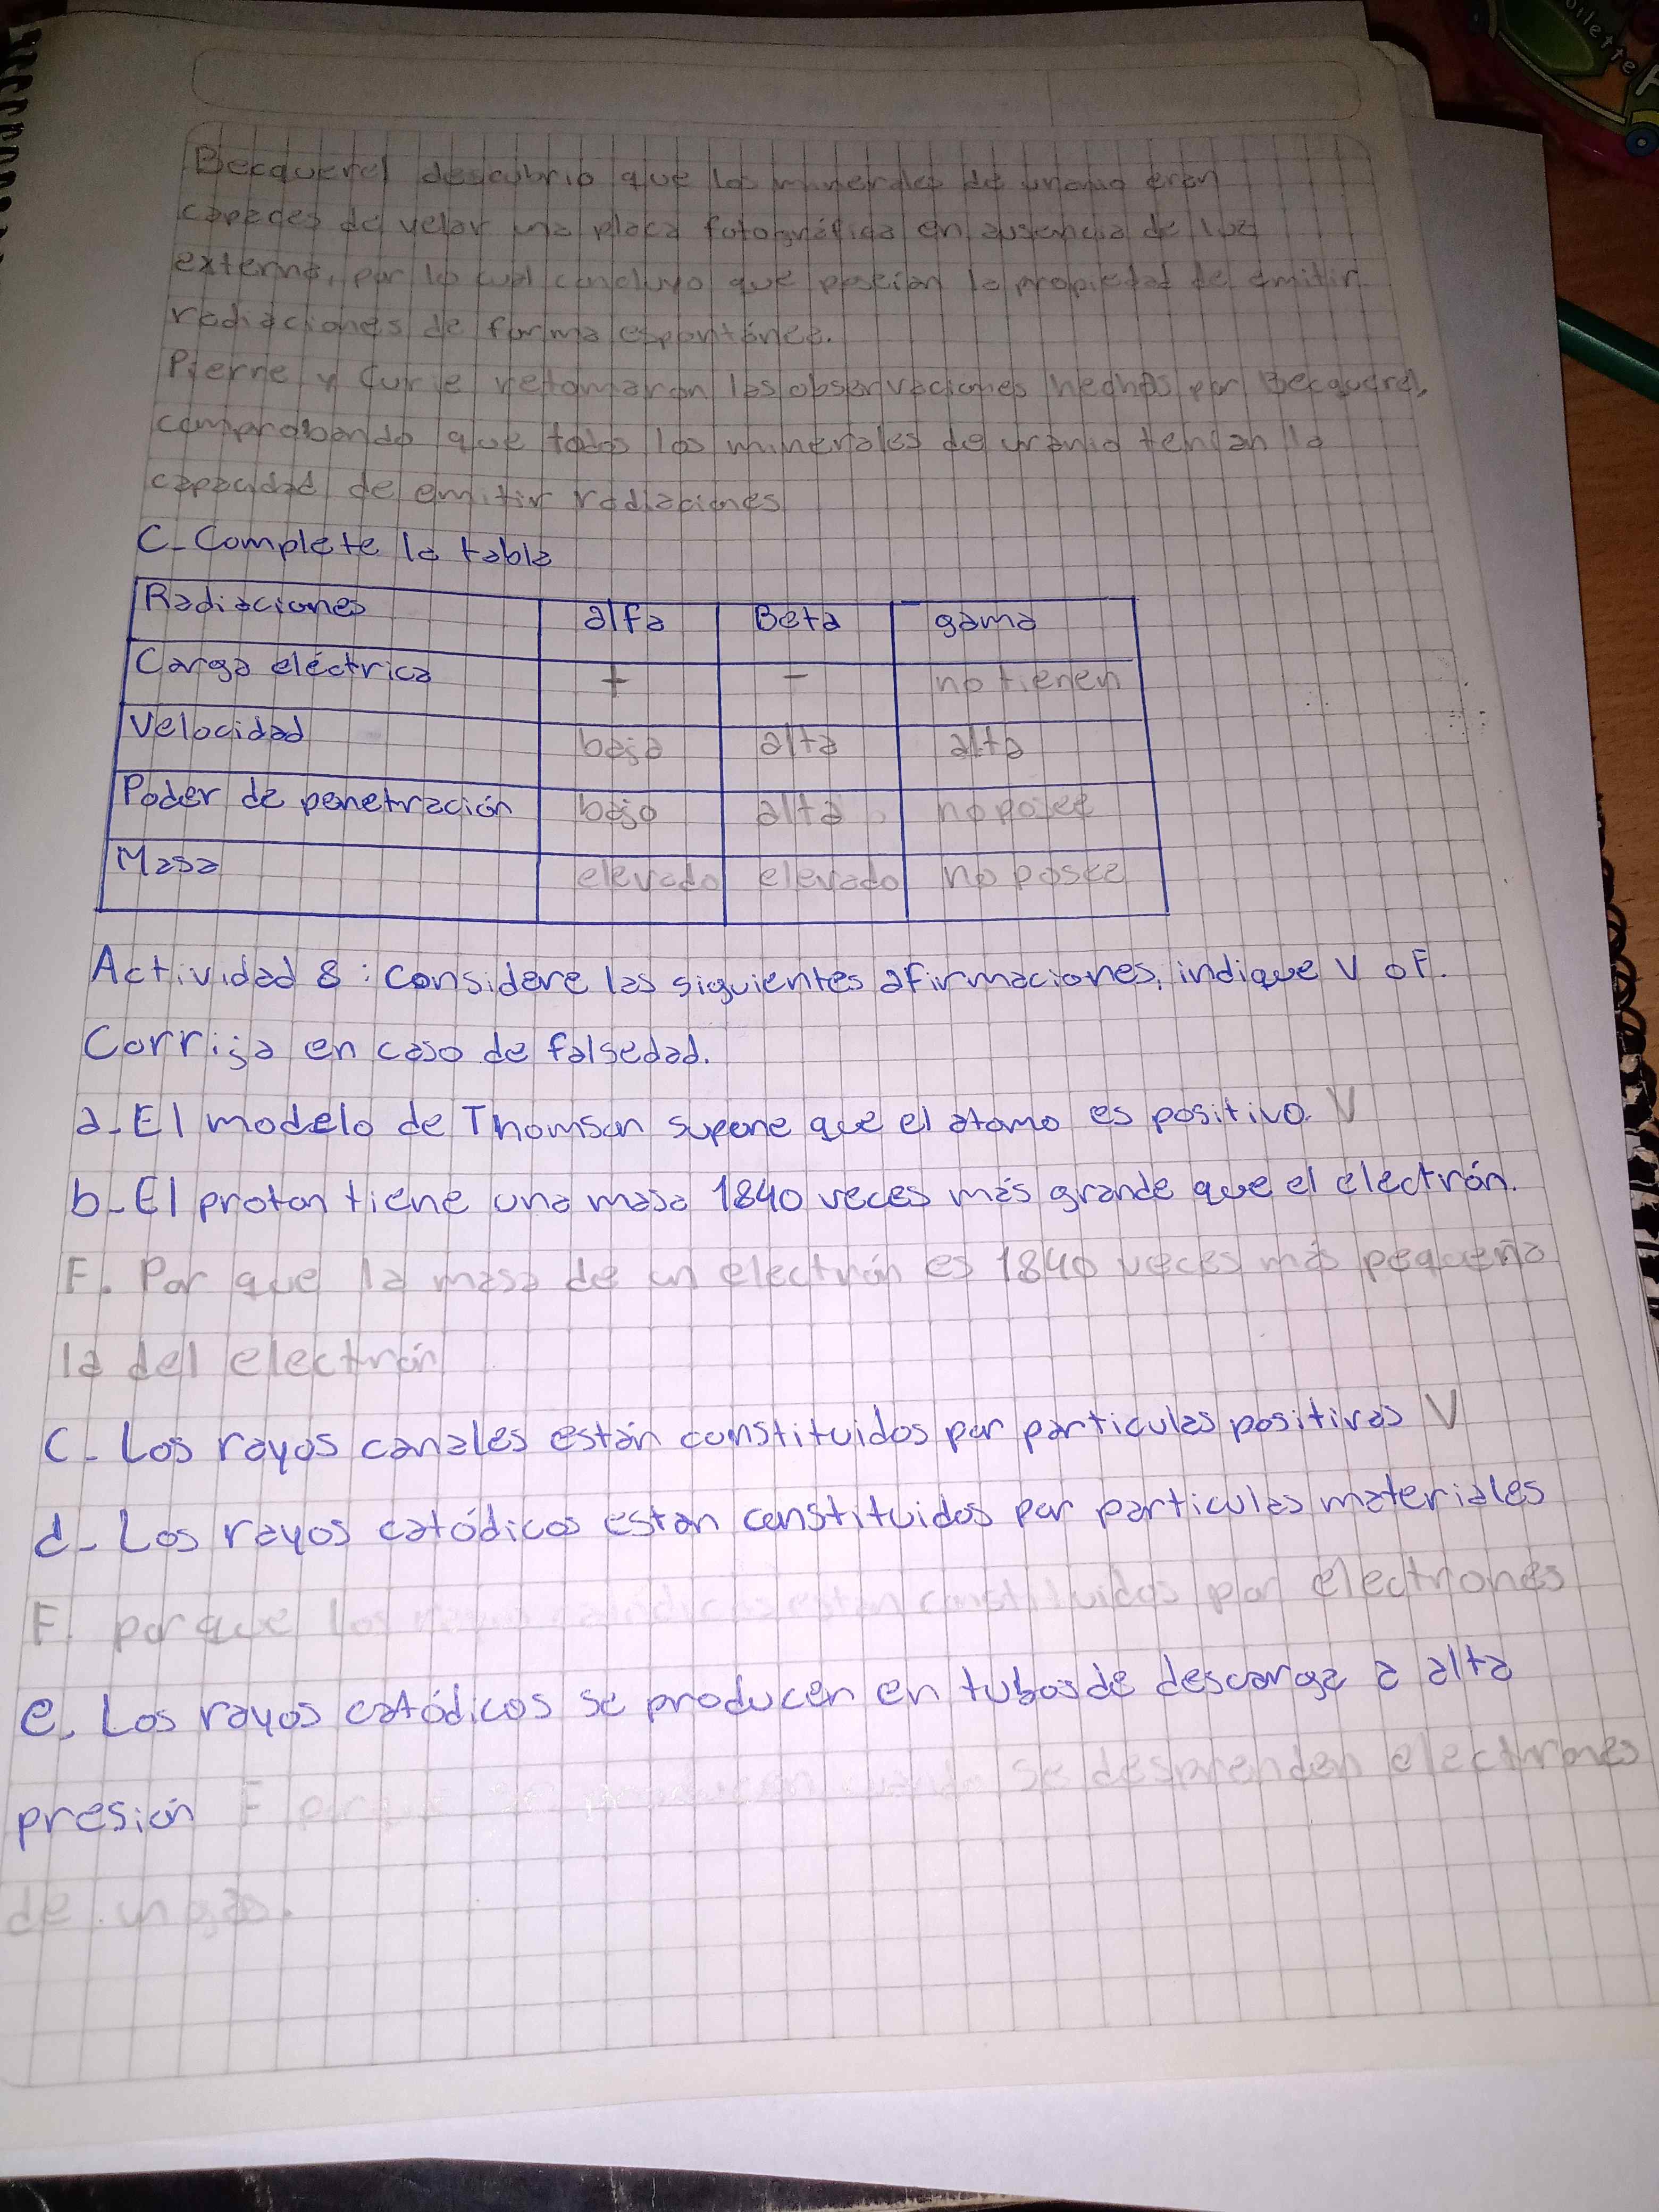 Becquerel descubrio que los minerales de uranio eran
capaces de velar una placa fotográfica en ausencia de luz
externa, por lo cual concluyo que poseian la propiedad de emitir
radiaciones de forma espontánea.
Pierre y Curie retomaron las observaciones hechas por Becquerel,
comprobando que todos los minerales de uranio tenian la
capacidad de emitir radiaciones
C- Complete la tabla
Radiaciones alfa Beta gama
Carga eléctrica + - no tienen
Velocidad baja alta alta
Poder de penetración bajo alta no posee
Masa elevado elevado no posee
Actividad 8: Considere las siguientes afirmaciones, indique V o F.
Corrija en caso de falsedad.
a- El modelo de Thomson supone que el atomo es positivo. V
b- El proton tiene una masa 1840 veces más grande que el electrón.
F. Por que la masa de un electrón es 1840 veces más pequeña
la del electrón
C- Los rayos canales están constituidos por particulas positivas V
d- Los rayos catódicos estan constituidos por particulas materiales
F. porque los rayos catódicos estan constituidos por electrones
e. Los rayos catódicos se producen en tubos de descarga a alta
presión F porque se producen cuando se desprenden electrones
de un gas.